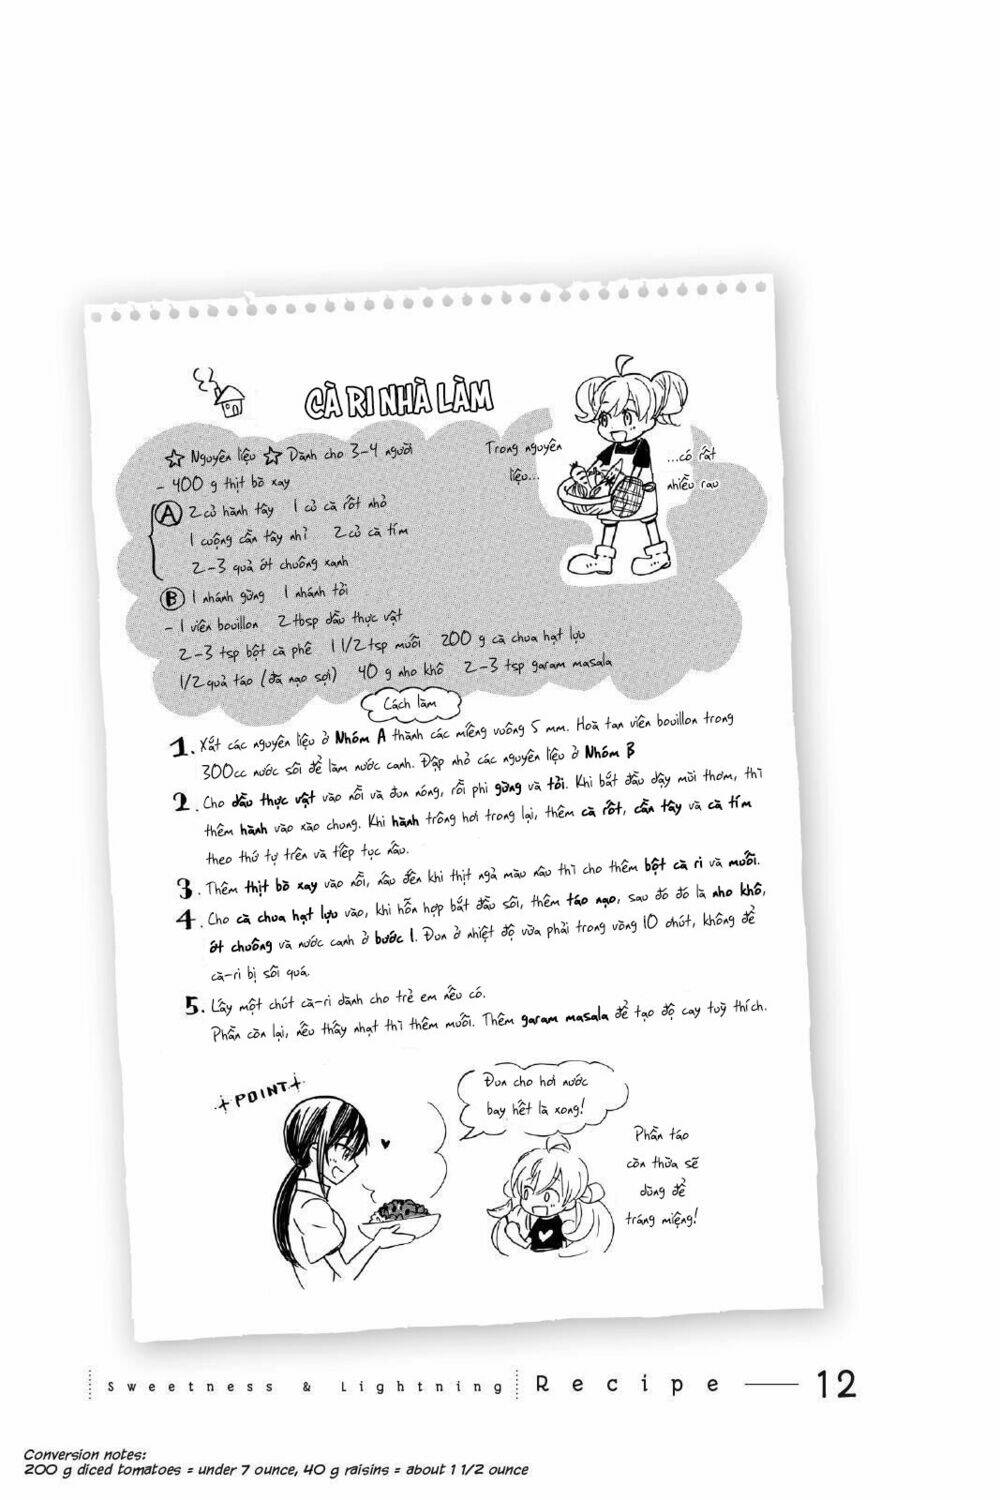 CÀ RI NHÀ LÀM
☆ Nguyên liệu ☆ Dành cho 3-4 người
- 400 g thịt bò xay
A 2 củ hành tây 1 củ cà rốt nhỏ
1 cuộng cần tây nhỉ 2 củ cà tím
2-3 quả ớt chuông xanh
B 1 nhánh gừng 1 nhánh tỏi
- 1 viên bouillon 2 tbsp dầu thực vật
2-3 tsp bột cà phê 1 1/2 tsp muối 200 g cà chua hạt lựu
1/2 quả táo (đã nạo sợi) 40 g nho khô 2-3 tsp garam masala
Trong nguyên
liệu...
...có rất
nhiều rau
Cách làm
1. Xắt các nguyên liệu ở Nhóm A thành các miếng vuông 5 mm. Hoà tan viên bouillon trong
300cc nước sôi để làm nước canh. Đập nhỏ các nguyên liệu ở Nhóm B
2. Cho dầu thực vật vào nồi và đun nóng, rồi phi gừng và tỏi. Khi bắt đầu dậy mùi thơm, thì
thêm hành vào xào chung. Khi hành trông hơi trong lại, thêm cà rốt, cần tây và cà tím
theo thứ tự trên và tiếp tục nấu.
3. Thêm thịt bò xay vào nồi, nấu đến khi thịt ngả màu nâu thì cho thêm bột cà ri và muối.
4. Cho cà chua hạt lựu vào, khi hỗn hợp bắt đầu sôi, thêm táo nạo, sau đó đó là nho khô,
ớt chuông và nước canh ở bước 1. Đun ở nhiệt độ vừa phải trong vòng 10 phút, không để
cà-ri bị sôi quá.
5. Lấy một chút cà-ri dành cho trẻ em nếu có.
Phần còn lại, nếu thấy nhạt thì thêm muối. Thêm garam masala để tạo độ cay tuỳ thích.
+POINT+
Đun cho hơi nước
bay hết là xong!
Phần táo
còn thừa sẽ
dùng để
tráng miệng!
Sweetness & Lightning Recipe — 12
Conversion notes:
200 g diced tomatoes = under 7 ounce, 40 g raisins = about 1 1/2 ounce